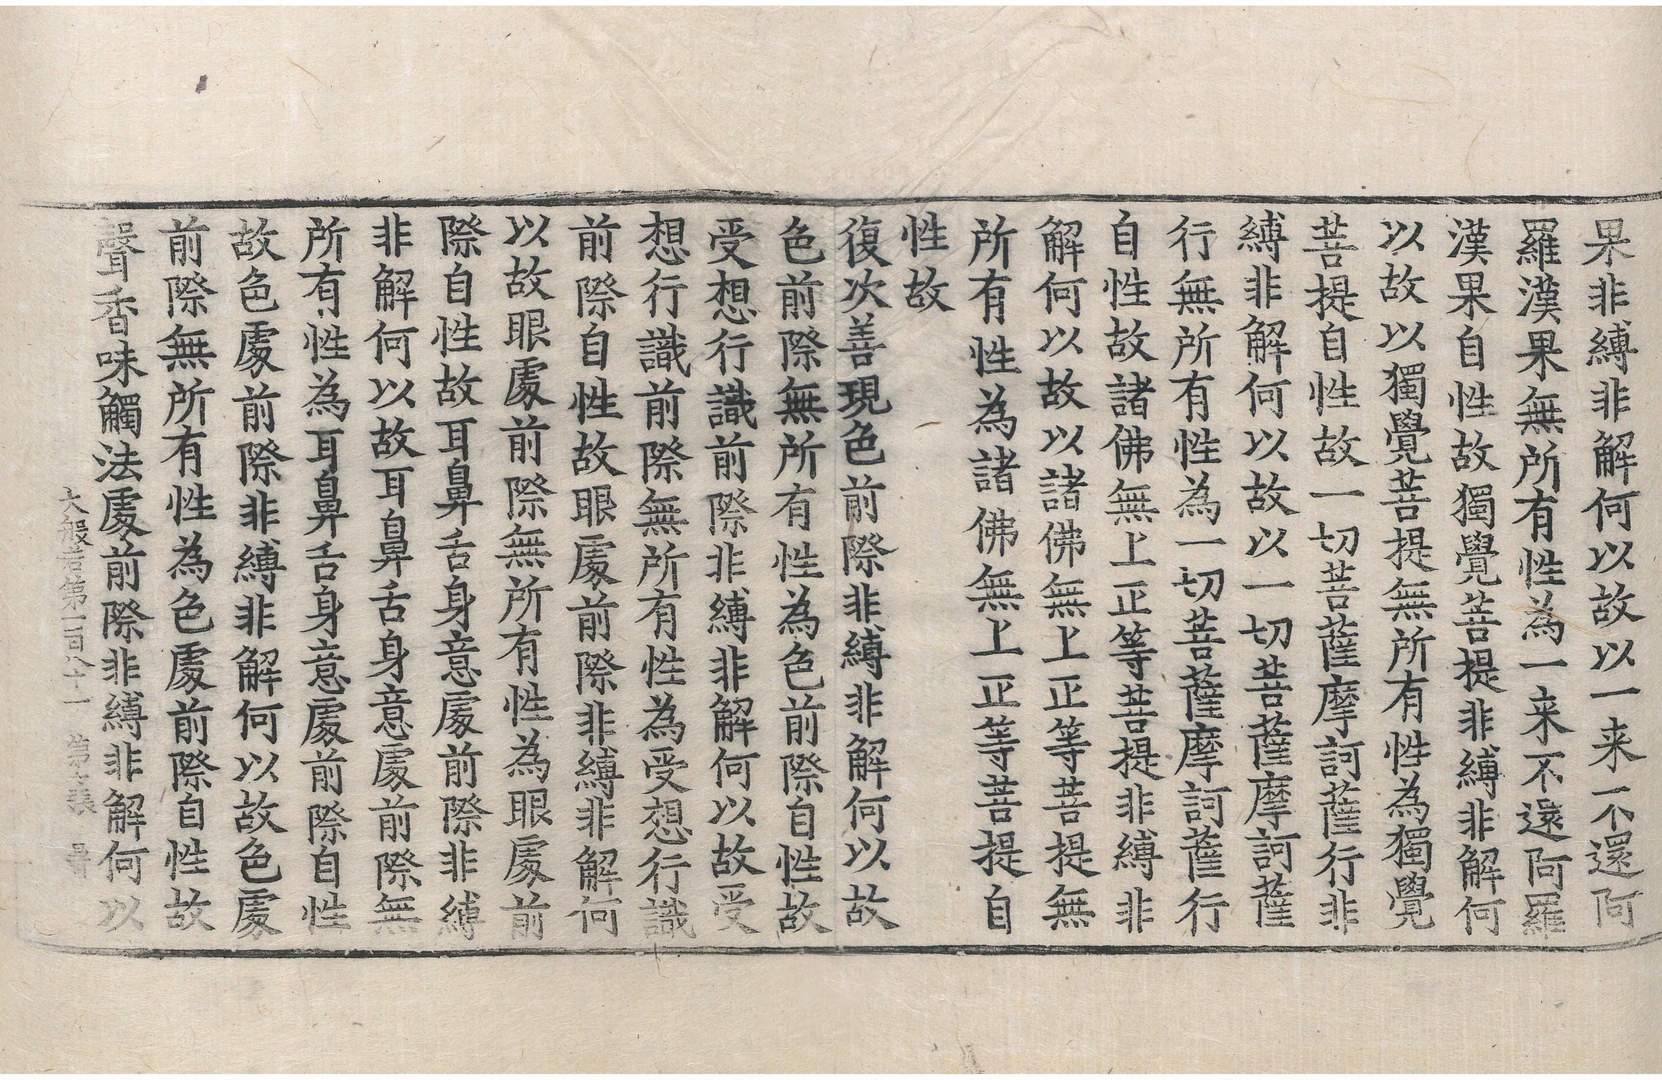 果非縛非解何以故以一来不還阿
羅漢果無所有性為一来不還阿羅
漢果自性故獨覺菩提非縛非解何
以故以獨覺菩提無所有性為獨覺
菩提自性故一切菩薩摩訶薩行非
縛非解何以故以一切菩薩摩訶薩
行無所有性為一切菩薩摩訶薩行
自性故諸佛無上正等菩提非縛非
解何以故以諸佛無上正等菩提無
所有性為諸佛無上正等菩提自
性故
復次善現色前際非縛非解何以故
色前際無所有性為色前際自性故
受想行識前際非縛非解何以故受
想行識前際無所有性為受想行識
前際自性故眼處前際非縛非解何
以故眼處前際無所有性為眼處前
際自性故耳鼻舌身意處前際非縛
非解何以故耳鼻舌身意處前際無
所有性為耳鼻舌身意處前際自性
故色處前際非縛非解何以故色處
前際無所有性為色處前際自性故
聲香味觸法處前際非縛非解何以
大般若第一百八十一 第 張